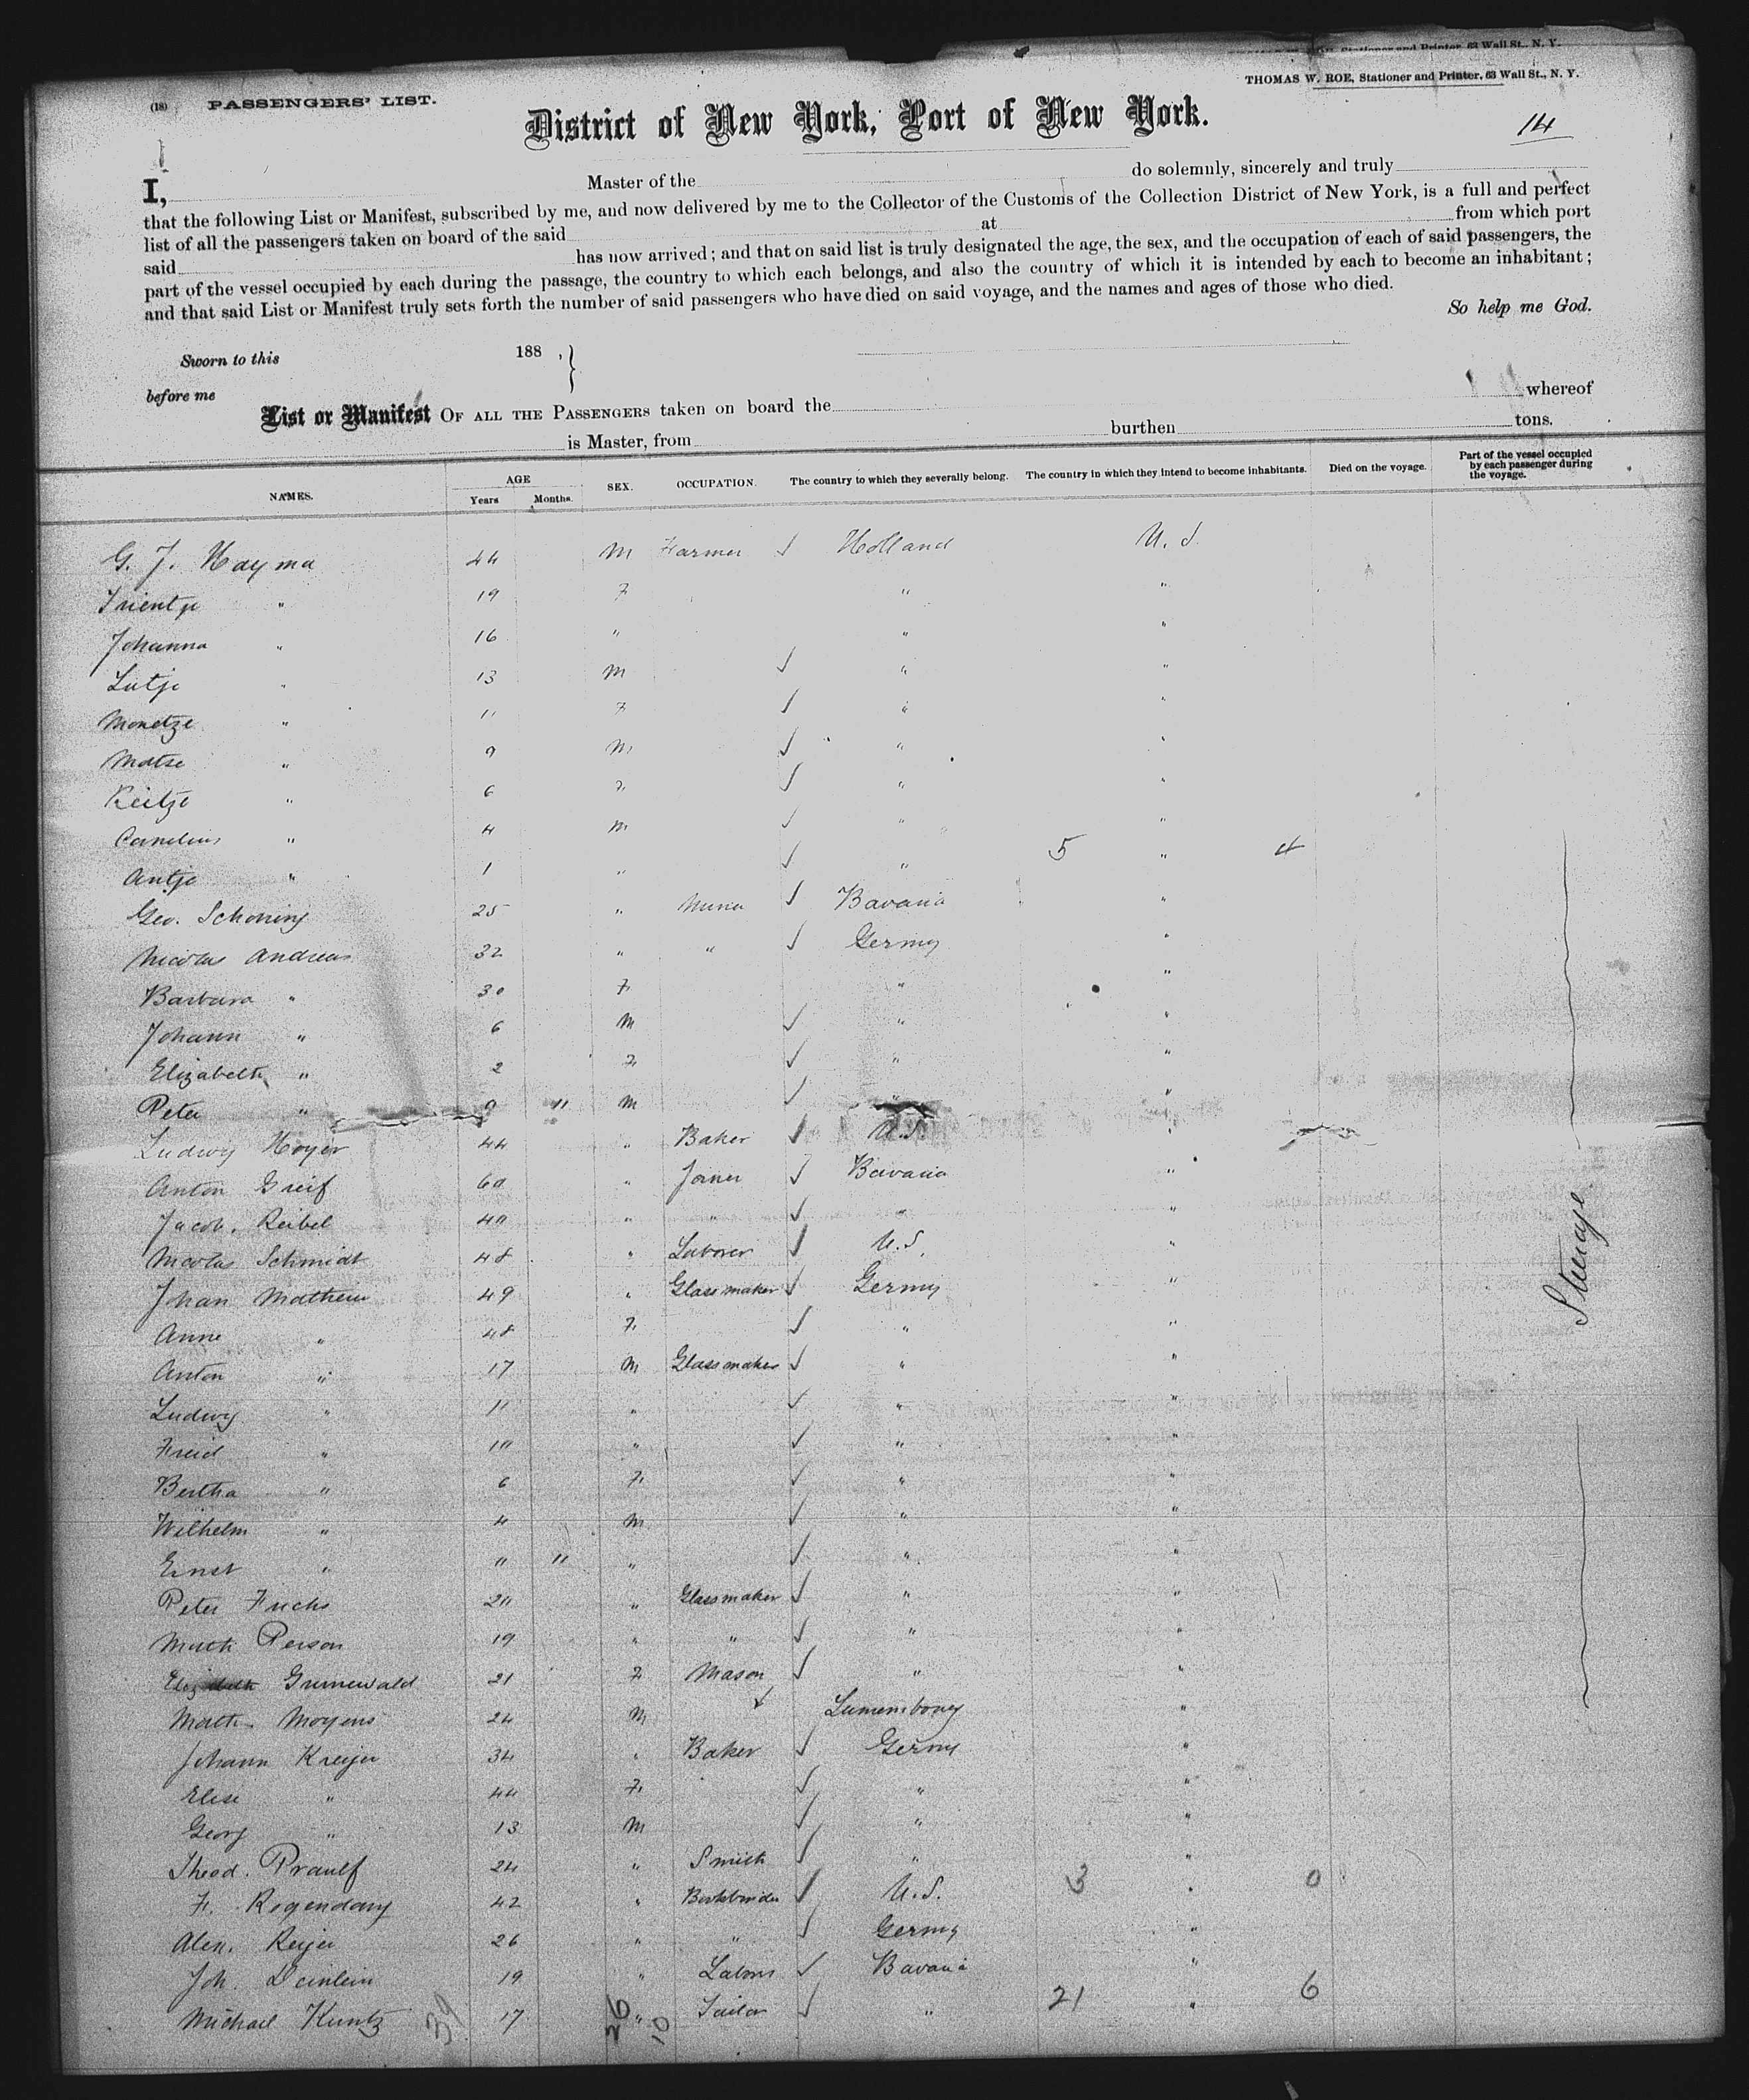 THOMAS W. ROE, Stationer and Printer, 63 Wall St., N. Y.
(18) PASSENGERS' LIST.
District of New York, Port of New York.
14
I, Master of the do solemnly, sincerely and truly
that the following List or Manifest, subscribed by me, and now delivered by me to the Collector of the Customs of the Collection District of New York, is a full and perfect
list of all the passengers taken on board of the said at from which port
said has now arrived; and that on said list is truly designated the age, the sex, and the occupation of each of said passengers, the
part of the vessel occupied by each during the passage, the country to which each belongs, and also the country of which it is intended by each to become an inhabitant;
and that said List or Manifest truly sets forth the number of said passengers who have died on said voyage, and the names and ages of those who died.
So help me God.
Sworn to this 188 ,
before me
List or Manifest OF ALL THE PASSENGERS taken on board the whereof
is Master, from burthen tons.
NAMES. AGE Years Months. SEX. OCCUPATION. The country to which they severally belong. The country in which they intend to become inhabitants. Died on the voyage. Part of the vessel occupied by each passenger during the voyage.
G. J. Hayma 44 M Farmer Holland U. S.
Trientje " 19 F " "
Johanna " 16 " " "
Lutje " 13 M " "
Monetze " 11 F " "
Matse " 9 M " "
Reitze " 6 F " "
Cornelius " 4 M " "
Antje " 1 " " 5 " 4
Geo. Schoning 25 " Miner Bavaria "
Nicolas Andreas 32 " " Germy "
Barbara " 30 F " "
Johann " 6 M " "
Elizabeth " 2 F " "
Peter " 9 " M " "
Ludwig Hoyer 44 " Baker U.S. "
Anton Greif 60 " Joiner Bavaria "
Jacob Reibel 40 " " " "
Nicolas Schmidt 48 " Laborer U.S. "
Johan Mathein 49 " Glassmaker Germy "
Anne " 48 F " "
Anton " 17 M Glassmaker " "
Ludwig " 11 " " "
Freid " 10 " " "
Bertha " 6 F " "
Wilhelm " 4 M " "
Ernst " " 11 " " "
Peter Fuchs 20 " Glassmaker " "
Math Person 19 " " " "
Elizabeth Grunewald 21 F Mason " "
Math. Moyens 24 M Luxembourg "
Johann Kreyer 34 " Baker Germy "
Elise " 44 F " "
Georg " 13 M " "
Theod. Praulf 24 " Smith " "
F. Rogendary 42 " Bookbinder U.S. 3 " 0
Alex. Reyer 26 " " Germy "
Joh. Deinlein 19 " Labour Bavaria "
Michael Kuntz 17 " Tailor " 21 " 6
39 26 10
Steerage